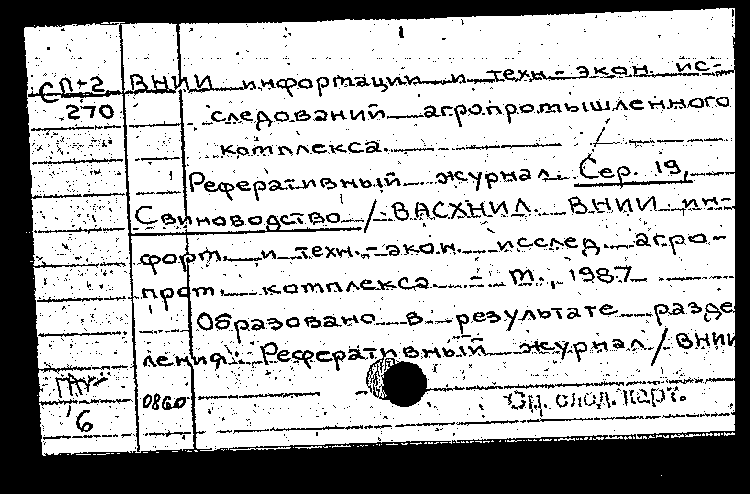 СП-2 ВНИИ информации и техн.-экон. ис-
270 следований агропромышленного
комплекса.
Реферативный журнал. Сер. 19,
Свиноводство / ВАСХНИЛ. ВНИИ ин-
форм. и техн.-экон. исслед. агро-
пром. комплекса. - М., 1987
Образовано в результате разде
ления: Реферативный журнал / ВНИИ
6 0860 См. след. карт.